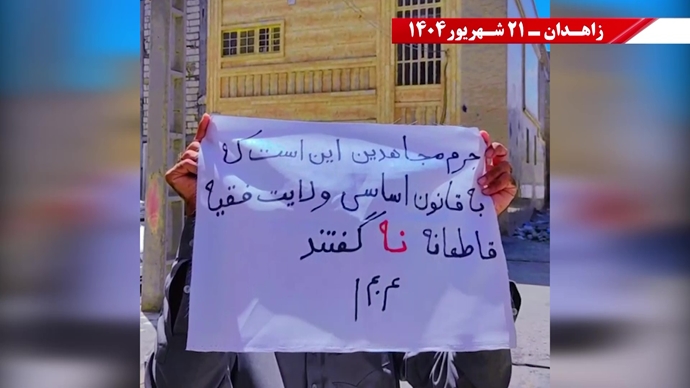 زاهدان ـ ۲۱ شهریور ۱۴۰۴
جرم مجاهدین این است که
به قانون اساسی ولایت فقیه
قاطعانه نه گفتند